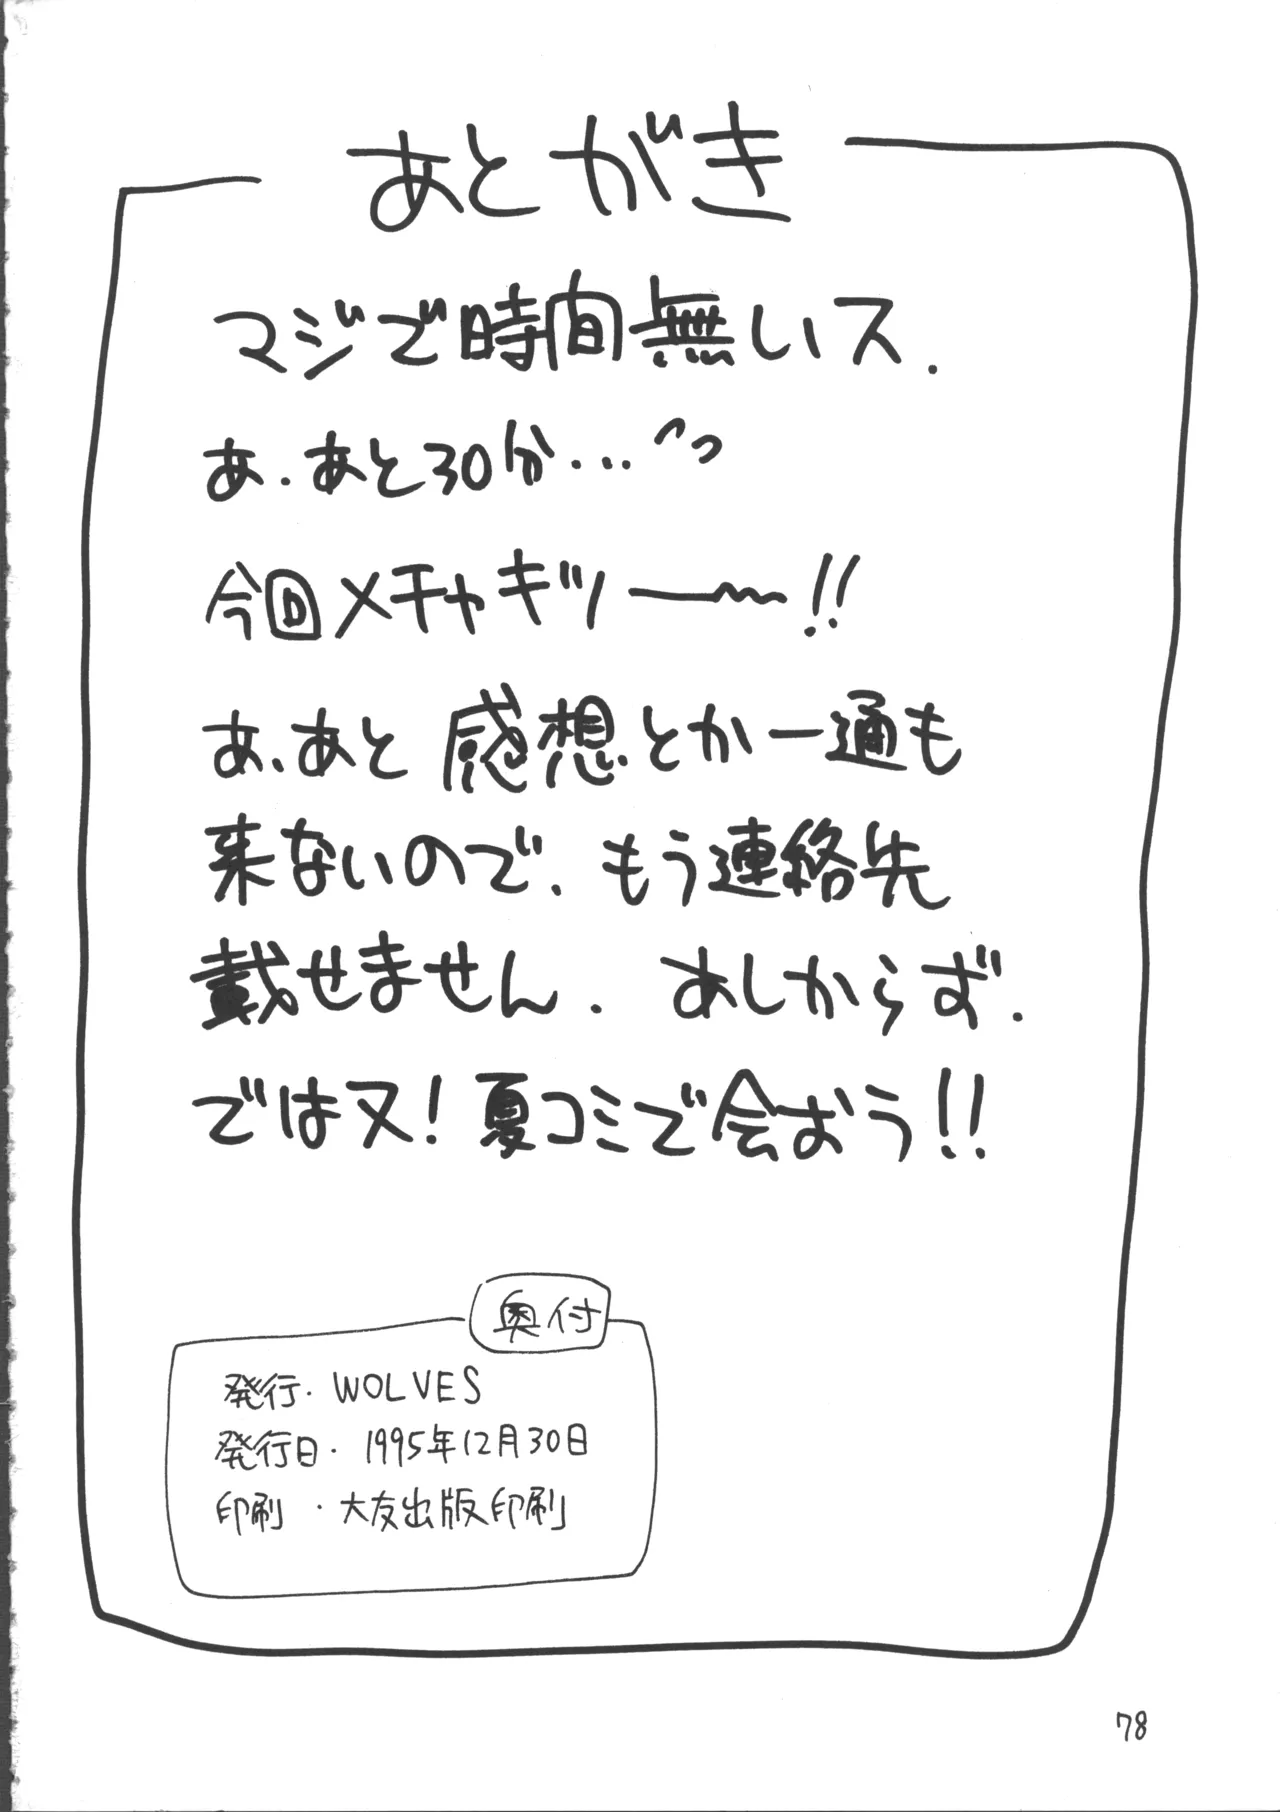 あとがき
マジで時間無いス.
あ.あと30分…
今回メチャキツ―〜!!
あ、あと感想とか一通も
来ないので、もう連絡先
載せません. あしからず.
では又! 夏コミで会おう!!
奥付
発行・WOLVES
発行日・1995年12月30日
印刷・大友出版印刷
78